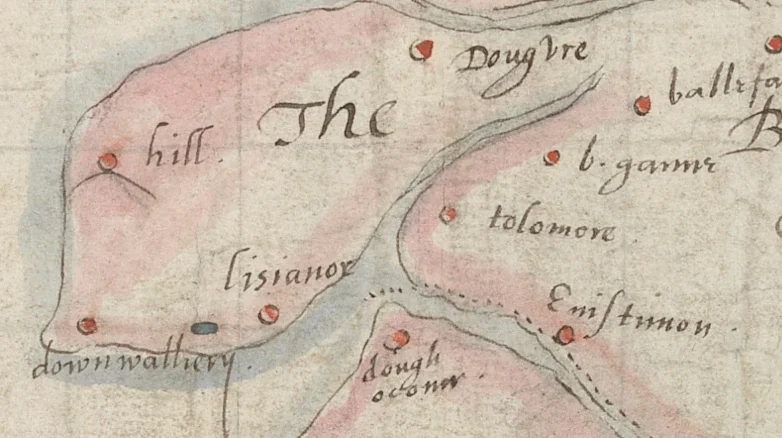 Dougvre
ballefa
The
B
hill.
b. ganne
tolomore
lisianor
Enistimon.
downwallery.
dough
oconnr.